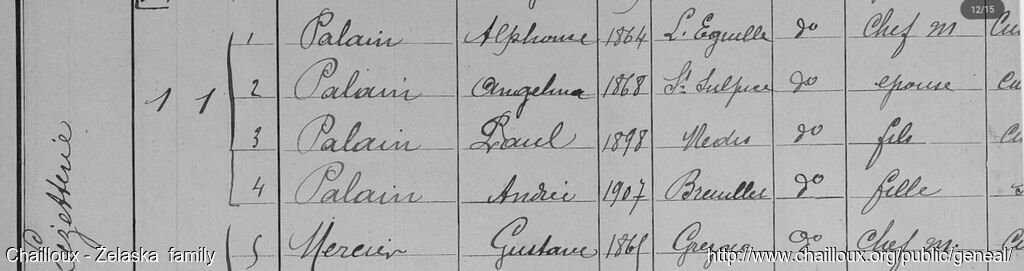 12/15
1 Palain Alphonse 1864 L'Eguille do Chef m
1 1 2 Palain Angelina 1868 St Sulpice do epouse
3 Palain Paul 1898 Medis do fils
4 Palain Andrée 1907 Breuillet do fille
5 Mercier Gustave 1865 do Chef m.
Chailloux - Żelaska family http://www.chailloux.org/public/geneal/